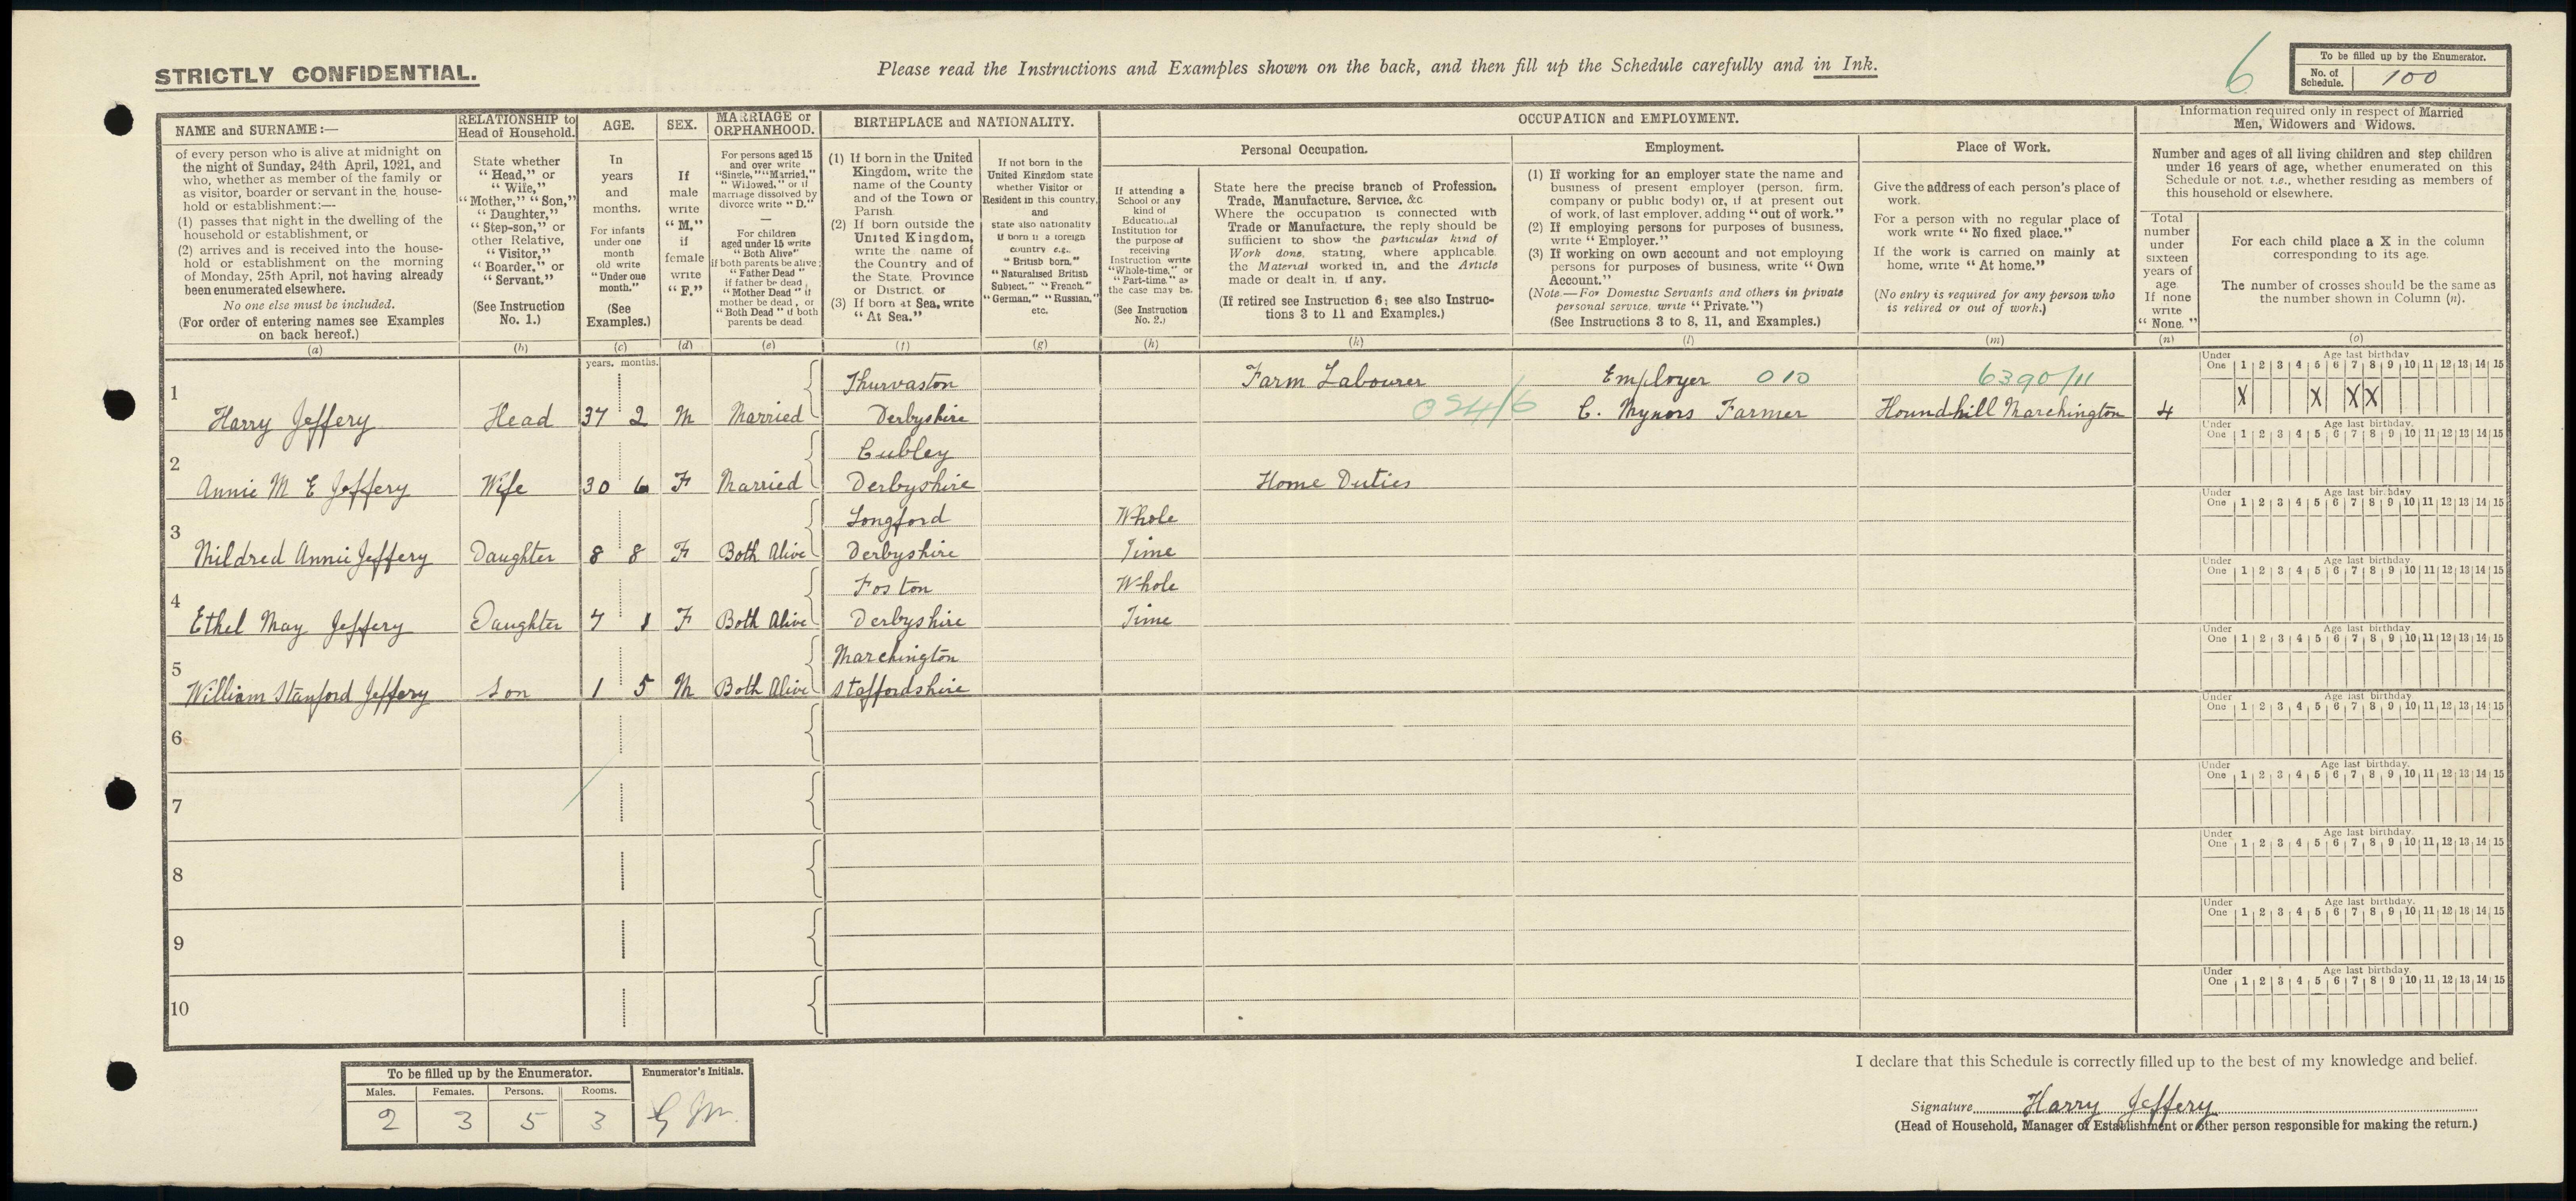 STRICTLY CONFIDENTIAL.
Please read the Instructions and Examples shown on the back, and then fill up the Schedule carefully and in Ink.
6
To be filled up by the Enumerator.
No. of Schedule. 100
NAME and SURNAME:—
of every person who is alive at midnight on
the night of Sunday, 24th April, 1921, and
who, whether as member of the family or
as visitor, boarder or servant in the house-
hold or establishment:—
(1) passes that night in the dwelling of the
household or establishment, or
(2) arrives and is received into the house-
hold or establishment on the morning
of Monday, 25th April, not having already
been enumerated elsewhere.
No one else must be included.
(For order of entering names see Examples
on back hereof.)
(a)
RELATIONSHIP to
Head of Household.
State whether
"Head," or
"Wife,"
"Mother," "Son,"
"Daughter,"
"Step-son," or
other Relative,
"Visitor,"
"Boarder," or
"Servant."
(See Instruction
No. 1.)
(b)
AGE.
In
years
and
months.
For infants
under one
month
old write
"Under one
month."
(See
Examples.)
(c)
SEX.
If
male
write
"M."
if
female
write
"F."
(d)
MARRIAGE or
ORPHANHOOD.
For persons aged 15
and over write
"Single," "Married,"
"Widowed," or if
marriage dissolved by
divorce write "D."
—
For children
aged under 15 write
"Both Alive"
if both parents be alive;
"Father Dead"
if father be dead,
"Mother Dead" if
mother be dead, or
"Both Dead" if both
parents be dead
(e)
BIRTHPLACE and NATIONALITY.
(1) If born in the United
Kingdom, write the
name of the County
and of the Town or
Parish.
(2) If born outside the
United Kingdom,
write the name of
the Country and of
the State, Province
or District, or
(3) If born at Sea, write
"At Sea."
(f)
If not born in the
United Kingdom state
whether Visitor or
Resident in this country,
and
state also nationality
if born in a foreign
country e.g.,
"British born,"
"Naturalised British
Subject," "French,"
"German," "Russian,"
etc.
(g)
OCCUPATION and EMPLOYMENT.
Personal Occupation.
If attending a
School or any
kind of
Educational
Institution for
the purpose of
receiving
Instruction write
"Whole-time," or
"Part-time" as
the case may be.
(See Instruction
No. 2.)
(h)
State here the precise branch of Profession,
Trade, Manufacture, Service, &c
Where the occupation is connected with
Trade or Manufacture, the reply should be
sufficient to show the particular kind of
Work done, stating, where applicable,
the Material worked in, and the Article
made or dealt in, if any.
(If retired see Instruction 6; see also Instruc-
tions 3 to 11 and Examples.)
(k)
Employment.
(1) If working for an employer state the name and
business of present employer (person, firm,
company or public body) or, if at present out
of work, of last employer, adding "out of work."
(2) If employing persons for purposes of business,
write "Employer."
(3) If working on own account and not employing
persons for purposes of business, write "Own
Account."
(Note.—For Domestic Servants and others in private
personal service, write "Private.")
(See Instructions 3 to 8, 11, and Examples.)
(l)
Place of Work.
Give the address of each person's place of
work.
For a person with no regular place of
work write "No fixed place."
If the work is carried on mainly at
home, write "At home."
(No entry is required for any person who
is retired or out of work.)
(m)
Information required only in respect of Married
Men, Widowers and Widows.
Number and ages of all living children and step children
under 16 years of age, whether enumerated on this
Schedule or not, i.e., whether residing as members of
this household or elsewhere.
Total
number
under
sixteen
years of
age.
If none
write
"None."
(n)
For each child place a X in the column
corresponding to its age.
The number of crosses should be the same as
the number shown in Column (n).
(o)
years. months.
1 Harry Jeffery Head 37 2 M Married Thurvaston Derbyshire Farm Labourer 024/6 Employer 010 C. Mynors Farmer 6390/11 Houndhill Marchington 4
Under One 1 2 3 4 5 6 7 8 9 10 11 12 13 14 15 Age last birthday
X X X X
2 Annie M E Jeffery Wife 30 6 F Married Cubley Derbyshire Home Duties
Under One 1 2 3 4 5 6 7 8 9 10 11 12 13 14 15 Age last birthday.
3 Mildred Annie Jeffery Daughter 8 8 F Both Alive Longford Derbyshire Whole Time
Under One 1 2 3 4 5 6 7 8 9 10 11 12 13 14 15 Age last birthday
4 Ethel May Jeffery Daughter 7 1 F Both Alive Foston Derbyshire Whole Time
Under One 1 2 3 4 5 6 7 8 9 10 11 12 13 14 15 Age last birthday.
5 William Stanford Jeffery Son 1 5 M Both Alive Marchington Staffordshire
Under One 1 2 3 4 5 6 7 8 9 10 11 12 13 14 15 Age last birthday.
6
Under One 1 2 3 4 5 6 7 8 9 10 11 12 13 14 15 Age last birthday
7
Under One 1 2 3 4 5 6 7 8 9 10 11 12 13 14 15 Age last birthday.
8
Under One 1 2 3 4 5 6 7 8 9 10 11 12 13 14 15 Age last birthday.
9
Under One 1 2 3 4 5 6 7 8 9 10 11 12 13 14 15 Age last birthday.
10
Under One 1 2 3 4 5 6 7 8 9 10 11 12 13 14 15 Age last birthday
To be filled up by the Enumerator.
Males. Females. Persons. Rooms.
2 3 5 3
Enumerator's Initials.
I declare that this Schedule is correctly filled up to the best of my knowledge and belief.
Signature Harry Jeffery
(Head of Household, Manager of Establishment or other person responsible for making the return.)